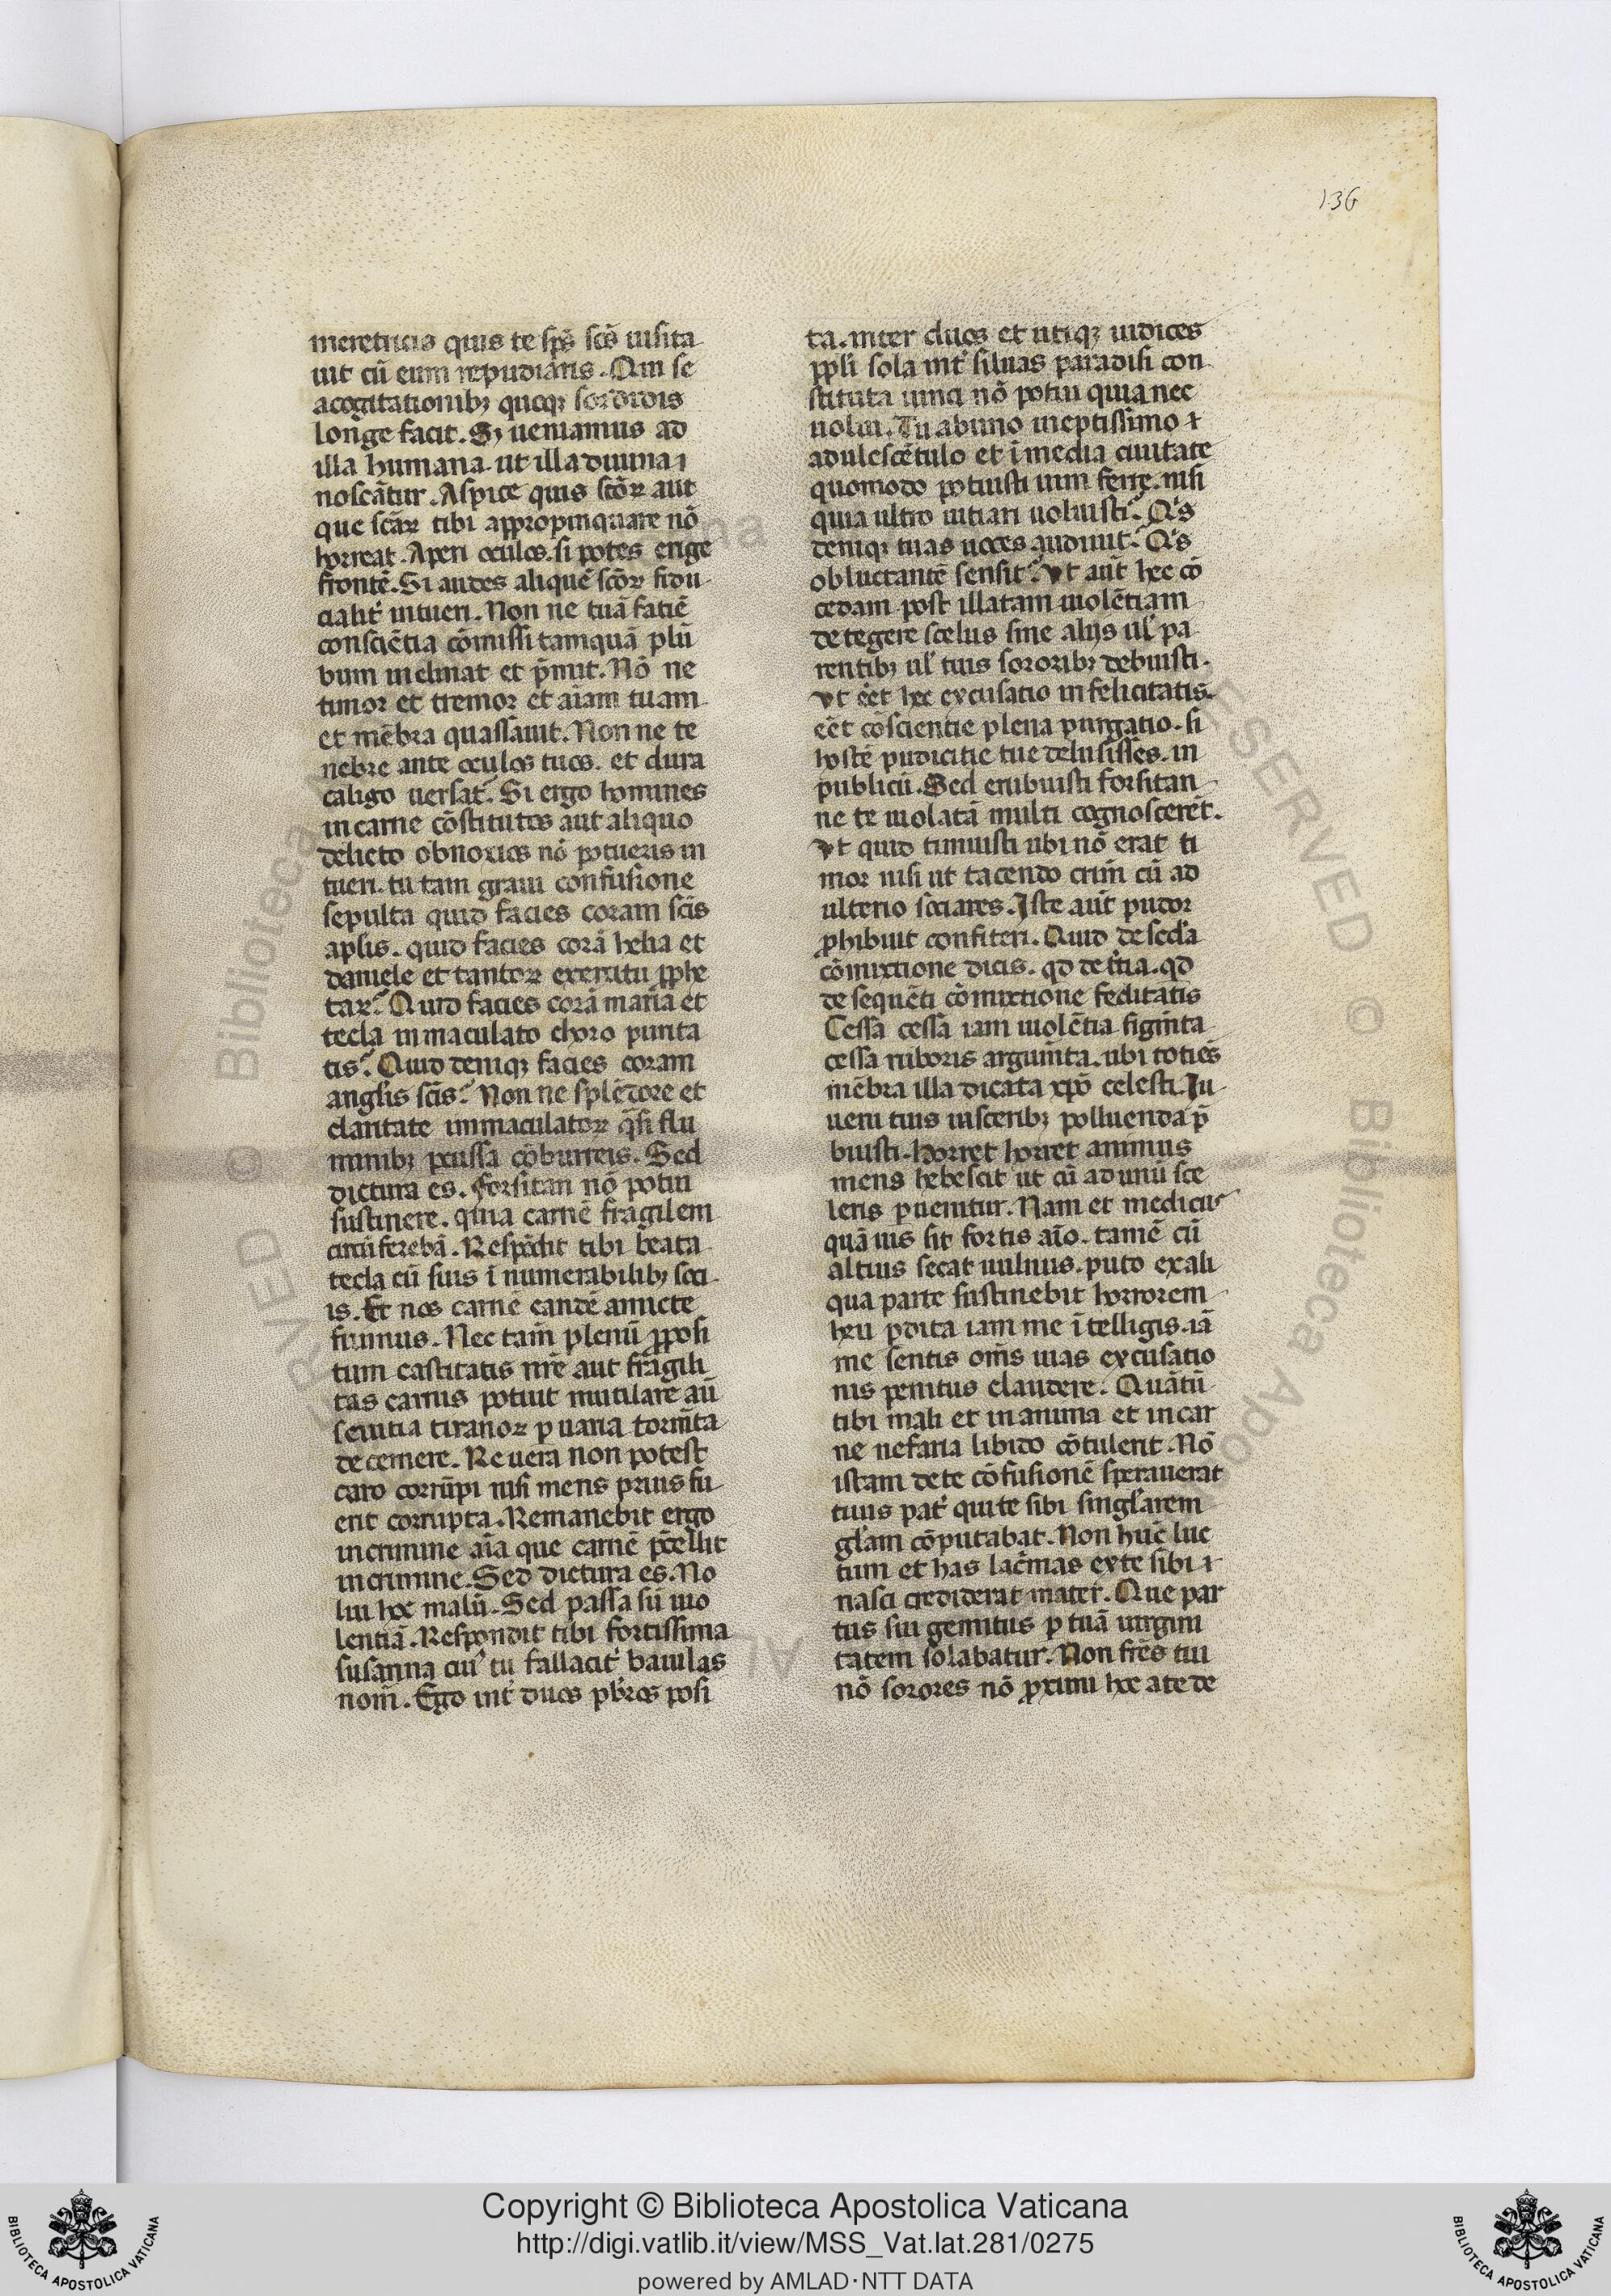 136
meretricis quis te sps̄ scs̄ uisita
uit cū eum repudiaris. Qui se
a cogitationibꝫ quoqꝫ sordidis
longe facit. Sꝫ ueniamus ad
illa humana. ut illa diuina ı
noscātur. Aspice quis scōꝝ aut
que scāꝝ tibi appropinquare nō
horreat. Aperi oculos. si potes erige
frontē. Si audes aliquē scōꝝ fidu
cialit᷑ intueri. Non ne tuā fatiē
consciētia cōmissi tamquā plū
bum inclinat et p̄mit. Nō ne
timor et tremor et aīam tuam
et mēbra quassauit. Non ne te
nebre ante oculos tuos. et dura
caligo uersat᷑. Si ergo homines
in carne cōstitutos aut aliquo
delicto obnoxios nō potueris in
tueri. tu tam graui confusione
sepulta quid facies coram scīs
aplīs. quid facies corā helia et
daniele et tantoꝝ exercitu pphe
taꝝ? Quid facies corā maria et
tecla immaculato choro purita
tis? Quid deniqꝫ facies coram
anglīs scīs? Non ne splēdore et
claritate immaculatoꝝ q̄si flu
minibꝫ ꝑcussa cōburreris. Sed
dictura es. Forsitan nō potui
sustinere. quia carnē fragilem
circūferebā. Respōdit tibi beata
tecla cū suis īnumerabilibꝫ soci
is. Et nos carnē eandē amicte
fuimus. Nec tam̄ plenū ꝓposi
tum castitatis nrē aut fragili
tas carnis potuit mutilare aū
seuitia tiranoꝝ ꝑ uaria torm̄ta
decernere. Reuera non potest
caro corrūpi nisi mens prius fu
erit corrupta. Remanebit ergo
in crimine aīa que carnē p̄cellit
in crimine. Sed dictura es. No
lui hoc malū. Sed passa sū uio
lentiā. Respondit tibi fortissima
susanna cui᷒ tu fallacit᷑ baiulas
nom̄. Ego int᷑ duos pb̄ros posi
ta. inter duos et utiqꝫ iudices
ppl̄i sola int᷑ siluas paradisi con
stituta uinci nō potui quia nec
uolui. Tu ab uno ineptissimo ⁊
adulescētulo et ī media ciuitate
quomodo potuisti uim ferre. nisi
quia ultro uitiari uoluisti? Qͥs
deniqꝫ tuas uoces audiuit? Qͥs
obluctantē sensit? Vt aūt hec cō
cedam post illatam uiolētiam
detegere scelus sine alijs ul̄ pa
rentibꝫ ul̄ tuis sororibꝫ debuisti.
Vt eēt hec excusatio infelicitatis.
eēt cōscientie plena purgatio. si
hostē pudicitie tue delusisses. in
publicū. Sed erubuisti forsitan
ne te uiolatā multi cognoscerēt.
Vt quid timuisti ubi nō erat ti
mor nisi ut tacendo crim̄ cū ad
ulterio sociares. Iste aūt pudor
ꝓhibuit confiteri. Quid de scd̄a
cōmixtione dicis. qd̄ de t̄tia. qd̄
de sequēti cōmixtione feditatis
Cessa cessa iam uiolētia figm̄ta
cessa ruboris argum̄ta. ubi toties
mēbra illa dicata xp̄o celesti. Iu
ueni tuis uisceribꝫ polluenda p̄
buisti. Horret horret animus
mens hebescit ut cū ad unū sce
leris ꝑuenitur. Nam et medicus
quāuis sit fortis aīo. tamē cū
altius secat uulnus. puto ex ali
qua parte sustinebit horrorem
heu ꝑdita iam me ītelligis. iā
me sentis om̄s uias excusatio
nis penitus claudere. Quātū
tibi mali et in anima et in car
ne nefaria libido cōtulerit. Nō
istam de te cōfusionē sperauerat
tuus pat᷑ qui te sibi singl̄arem
gl̄am cōputabat. Non hūc luc
tum et has lac̄mas ex te sibi ı
nasci crediderat mater. Que par
tus sui gemitus ꝑ tuā uirgini
tatem solabatur. Non frēs tui
nō sorores nō ꝓximi hoc a te de
Copyright © Biblioteca Apostolica Vaticana
http://digi.vatlib.it/view/MSS_Vat.lat.281/0275
powered by AMLAD·NTT DATA
BIBLIOTECA APOSTOLICA VATICANA
BIBLIOTECA APOSTOLICA VATICANA